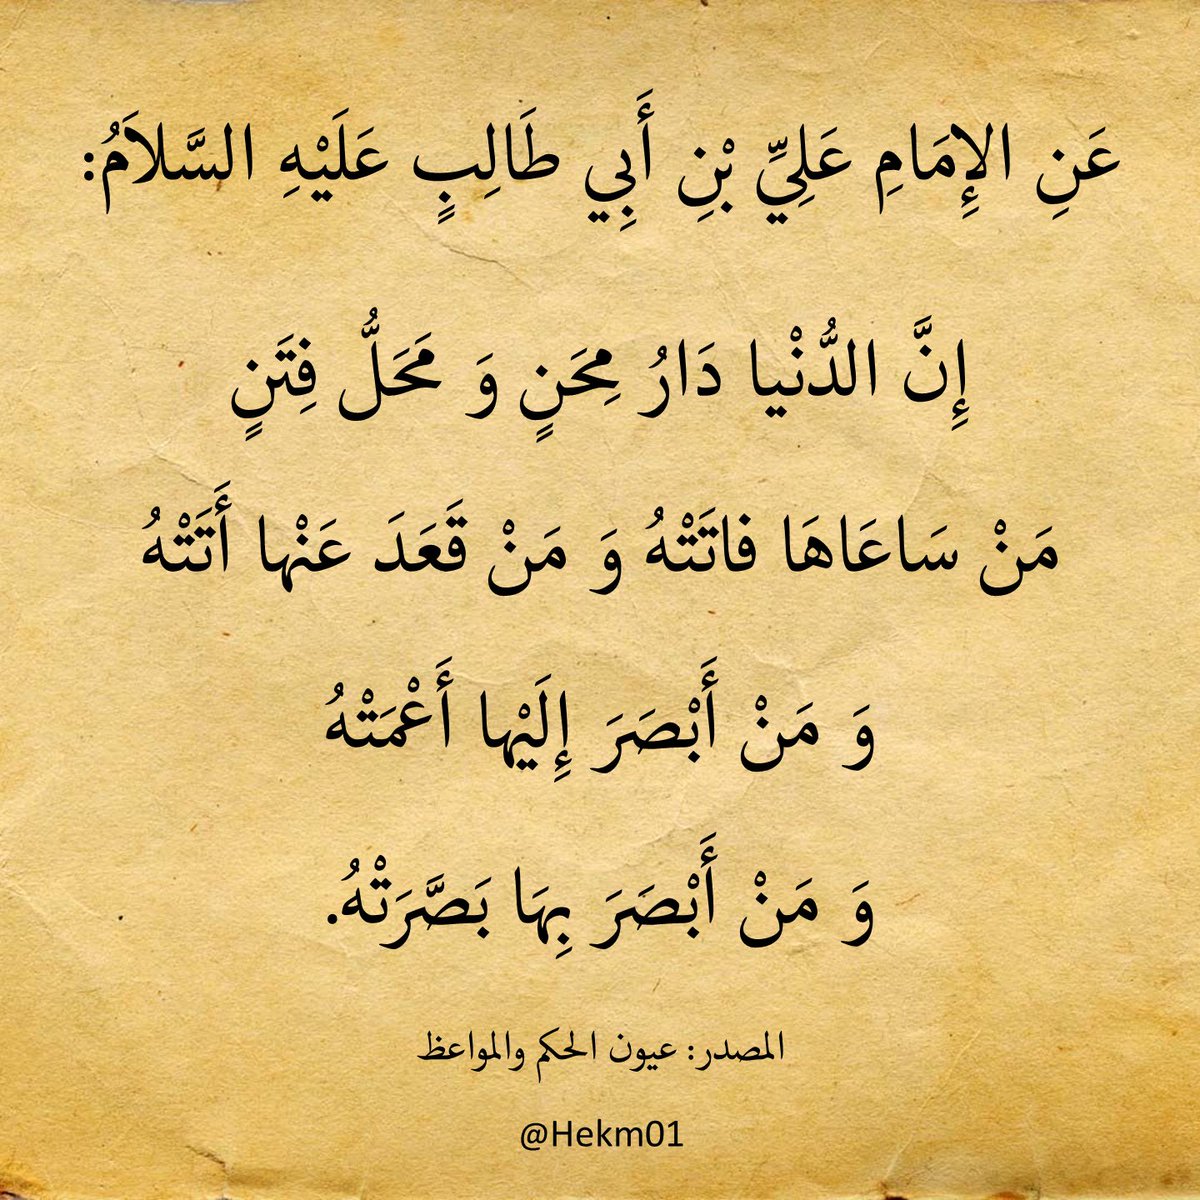 عَنِ الإِمَامِ عَلِيِّ بْنِ أَبِي طَالِبٍ عَلَيْهِ السَّلاَمُ:
إِنَّ الدُّنْيا دَارُ مِحَنٍ وَ مَحَلُّ فِتَنٍ
مَنْ سَاعَاهَا فاتَتْهُ وَ مَنْ قَعَدَ عَنْها أَتَتْهُ
وَ مَنْ أَبْصَرَ إِلَيْها أَعْمَتْهُ
وَ مَنْ أَبْصَرَ بِهَا بَصَّرَتْهُ.
المصدر: عيون الحكم والمواعظ
@Hekm01